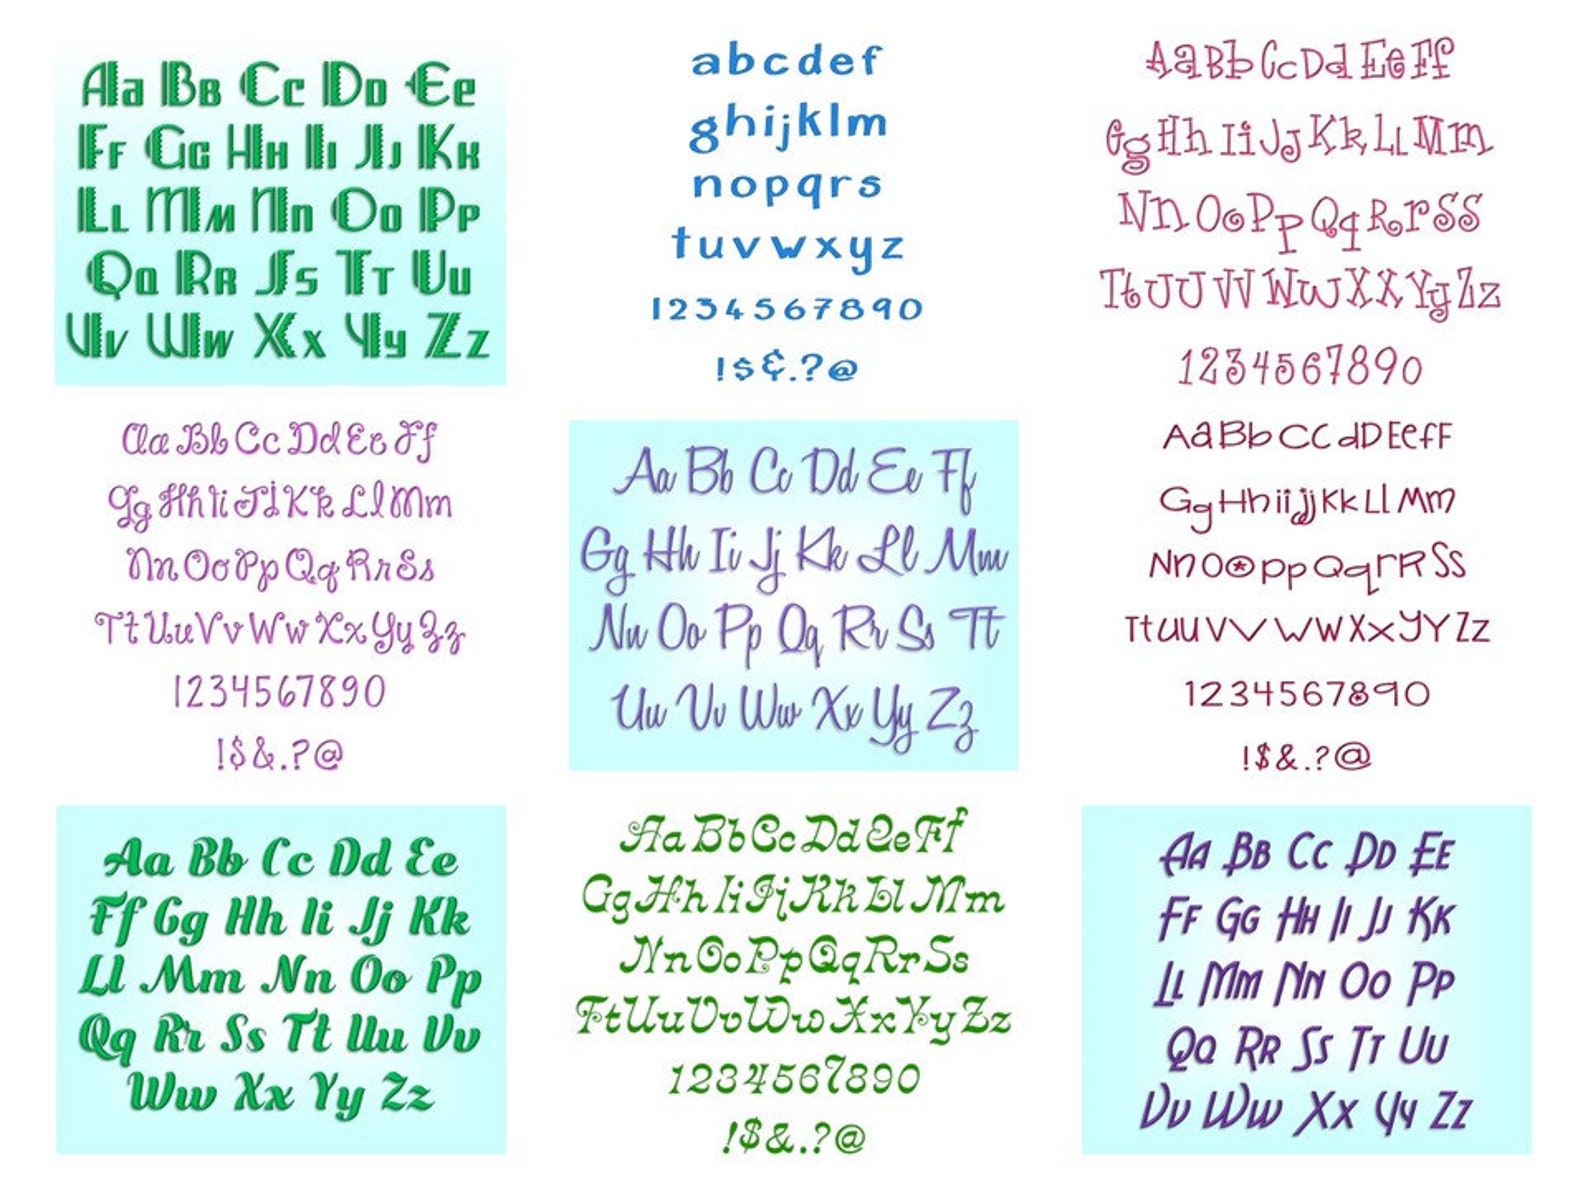 Aa Bb Cc Dd Ee
Ff Gg Hh Ii Jj Kk
Ll Mm Nn Oo Pp
Qq Rr Ss Tt Uu
Vv Ww Xx Yy Zz
abcdef
ghijklm
nopqrs
tuvwxyz
1234567890
!$&.?@
Aa Bb Cc Dd Ee Ff
Gg Hh Ii Jj Kk Ll Mm
Nn Oo Pp Qq Rr SS
Tt UU VV Ww XX Yy Zz
1234567890
Aa Bb Cc Dd Ee Ff
Gg Hh Ii Jj Kk Ll Mm
Nn Oo Pp Qq Rr Ss
Tt Uu Vv Ww Xx Yy Zz
1234567890
!$&.?@
Aa Bb Cc Dd Ee Ff
Gg Hh Ii Jj Kk Ll Mm
Nn Oo Pp Qq Rr Ss Tt
Uu Vv Ww Xx Yy Zz
Aa Bb CC dD Ee fF
Gg Hh ii jj Kk Ll Mm
Nn Oo pp Qq rR Ss
Tt uU VV WW Xx YY Zz
1234567890
!$&.?@
Aa Bb Cc Dd Ee
Ff Gg Hh Ii Jj Kk
Ll Mm Nn Oo Pp
Qq Rr Ss Tt Uu Vv
Ww Xx Yy Zz
Aa Bb Cc Dd Ee Ff
Gg Hh Ii Jj Kk Ll Mm
Nn Oo Pp Qq Rr Ss
Tt Uu Vv Ww Xx Yy Zz
1234567890
!$&.?@
Aa Bb Cc Dd Ee
Ff Gg Hh Ii Jj Kk
Ll Mm Nn Oo Pp
Qq Rr Ss Tt Uu
Vv Ww Xx Yy Zz